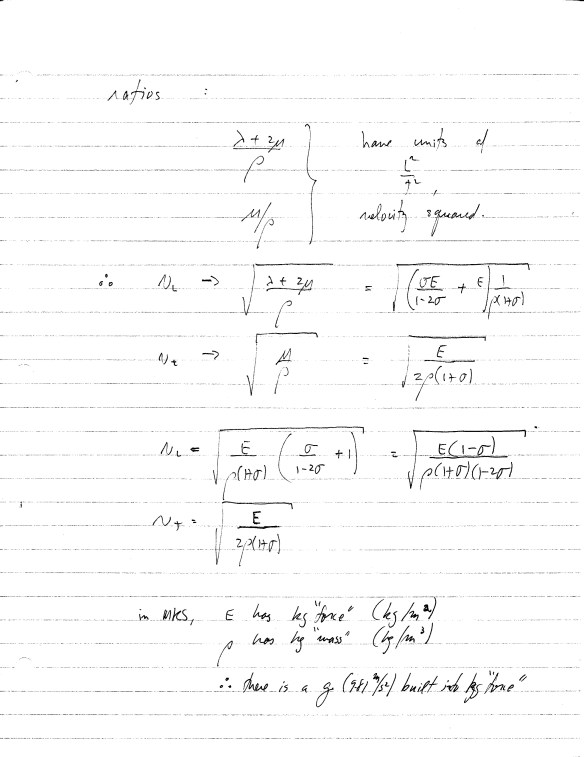 ratios :
λ + 2μ / ρ } have units of L² / t² ,
μ/ρ velocity squared.
∴ v_L → √((λ + 2μ)/ρ) = √((σE/(1-2σ) + E) 1/(ρ(1+σ)))
v_t → √(μ/ρ) = √(E/(2ρ(1+σ)))
v_L = √(E/(ρ(1+σ)) (σ/(1-2σ) + 1)) = √(E(1-σ)/(ρ(1+σ)(1-2σ)))
v_t = √(E/(2ρ(1+σ)))
in MKS, E has kg "force" (kg/m²)
ρ has kg "mass" (kg/m³)
∴ there is a g (9.81 m/s²) built into kg "force"